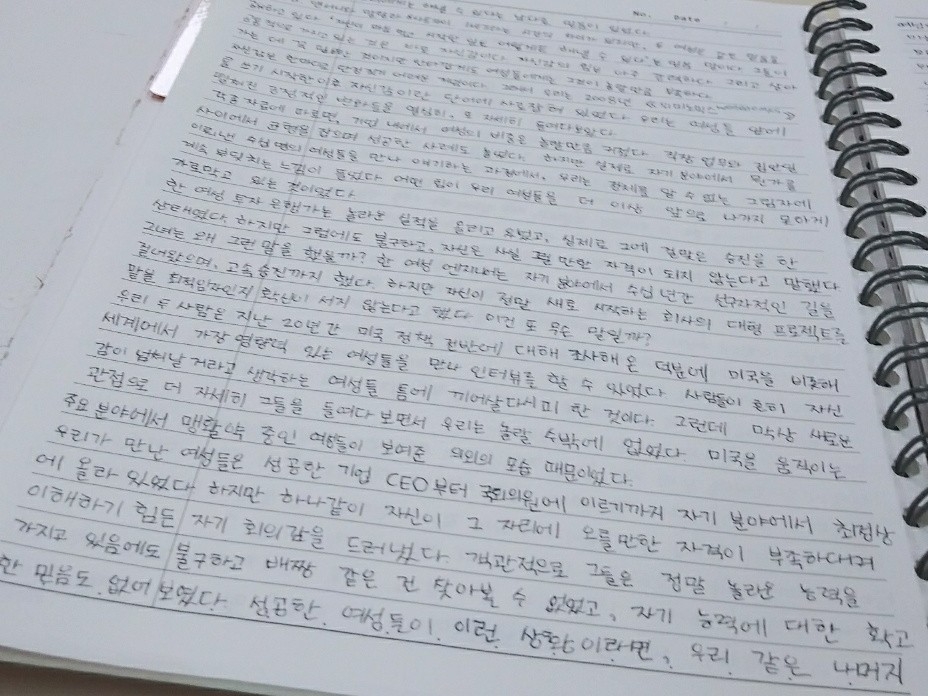 No. Date
를 쓰기 시작한 이후 자신감이란 단어에 사로잡혀 있었다 우리는 여성들 앞에
펼쳐진 긍정적인 변화들을 열심히, 또 자세히 들여다보았다
각종 자료에 따르면, 기업 내에서 여성의 비중은 놀랄만큼 커졌다. 직장 업무와 집안일
사이에서 균형을 잡으며 성공한 사례도 늘었다. 하지만 실제로 자기 분야에서 뭔가를
이뤄낸 수십 명의 여성들을 만나 얘기하는 과정에서, 우리는 정체를 알 수 없는 그림자에
계속 부딪치는 느낌이 들었다 어떤 힘이 우리 여성들을 더 이상 앞으로 나가지 못하게
가로막고 있는 것이었다
한 여성 투자 은행가는 놀라운 실적을 올리고 있었고, 실제로 그에 걸맞은 승진을 한
상태였다. 하지만 그럼에도 불구하고, 자신은 사실 그럴 만한 자격이 되지 않는다고 말했다
그녀는 왜 그런 말을 했을까? 한 여성 엔지니어는 자기 분야에서 수십 년간 선구자적인 길을
걸어왔으며, 고속승진까지 했다. 하지만 자신이 정말 새로 시작하는 회사의 대형 프로젝트를
맡을 최적임자인지 확신이 서지 않는다고 했다 이건 또 무슨 말일까?
우리 두 사람은 지난 20년간 미국 정책 전반에 대해 조사해 온 덕분에 미국을 비롯해
세계에서 가장 영향력 있는 여성들을 만나 인터뷰를 할 수 있었다 사람들이 흔히 자신
감이 넘쳐날 거라고 생각하는 여성들 틈에 끼어살다시피 한 것이다. 그런데 막상 새로운
관점으로 더 자세히 그들을 들여다 보면서 우리는 놀랄 수밖에 없었다. 미국을 움직이는
주요 분야에서 맹활약 중인 여성들이 보여준 의외의 모습 때문이었다.
우리가 만난 여성들은 성공한 기업 CEO부터 국회의원에 이르기까지 자기 분야에서 최정상
에 올라 있었다 하지만 하나같이 자신이 그 자리에 오를만한 자격이 부족하다며
이해하기 힘든 자기 회의감을 드러냈다. 객관적으로 그들은 정말 놀라운 능력을
가지고 있음에도 불구하고 배짱 같은 건 찾아볼 수 없었고, 자기 능력에 대한 확고
한 믿음도 없어 보였다. 성공한 여성들이 이런 상황이라면, 우리 같은 나머지